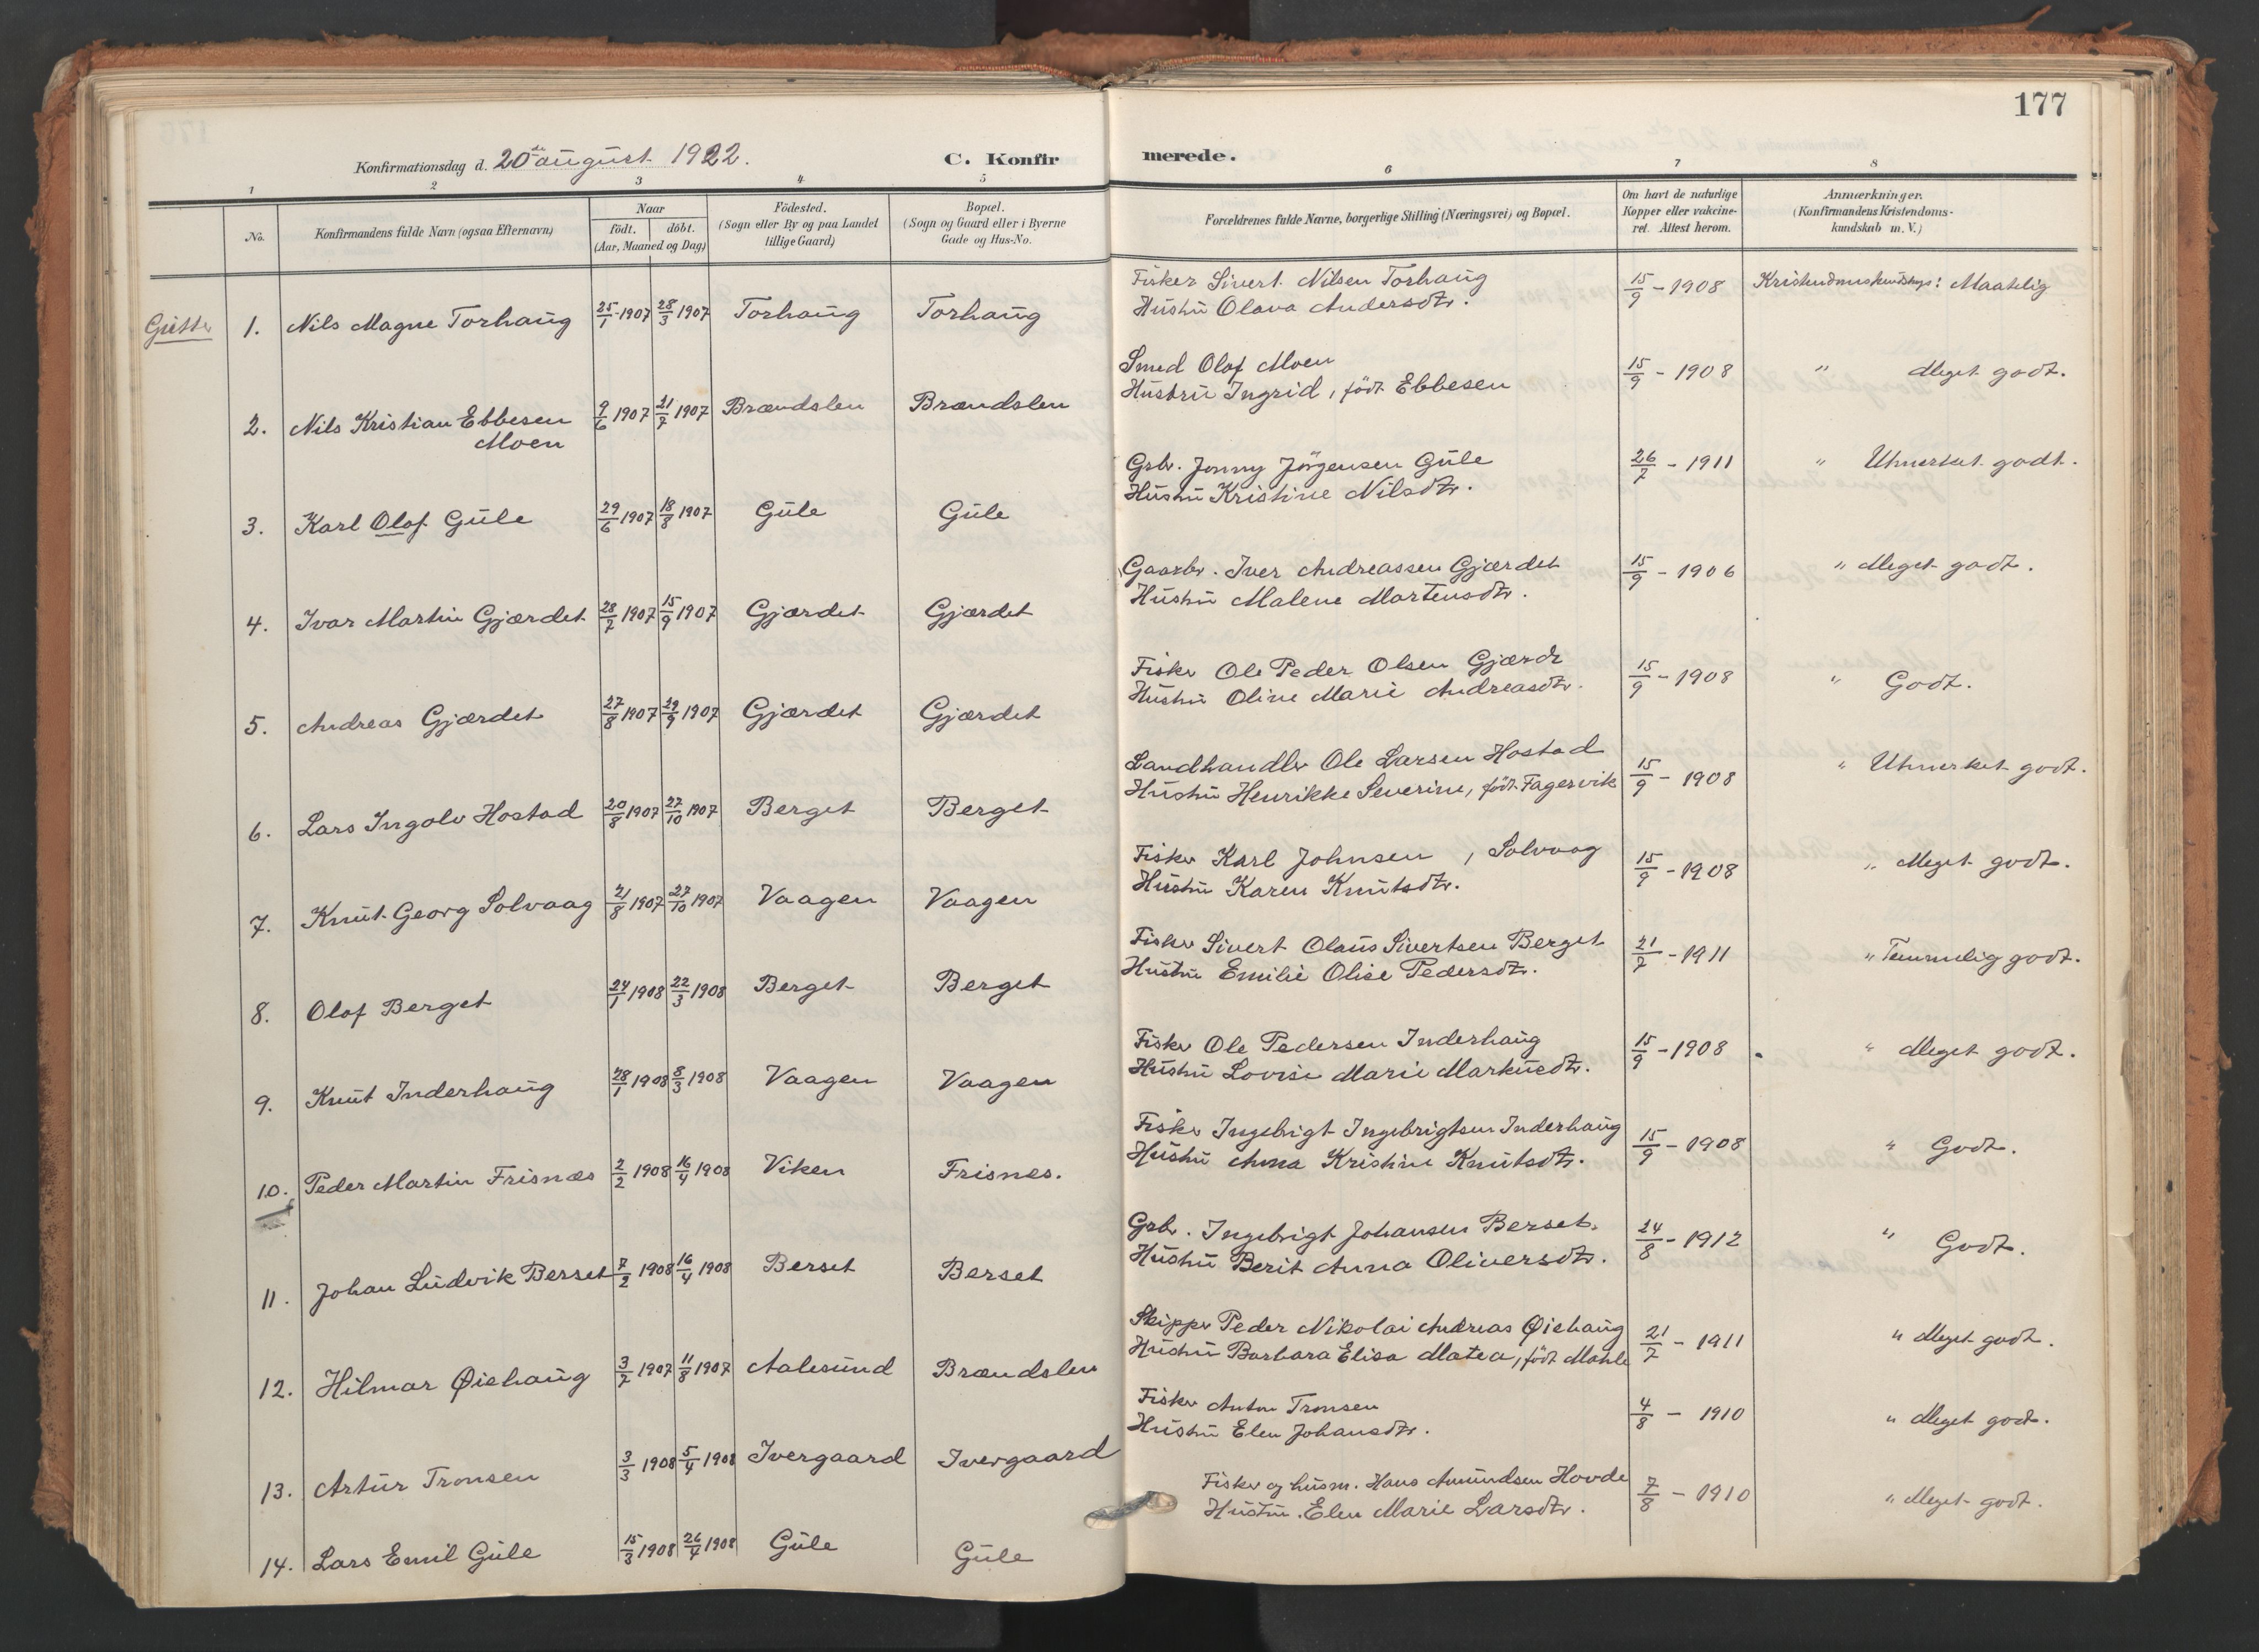 177
Konfirmationsdag d. 20de august 1922.
C. Konfirmerede.
1 2 3 4 5 6 7 8
No.
Konfirmandens fulde Navn (ogsaa Efternavn)
Naar
födt. döbt.
(Aar, Maaned og Dag)
Födested.
(Sogn eller By og paa Landet
tillige Gaard)
Bopæl.
(Sogn og Gaard eller i Byerne
Gade og Hus-No.
Forældrenes fulde Navne, borgerlige Stilling (Næringsvei) og Bopæl.
Om havt de naturlige
Kopper eller vakcine-
ret. Attest herom.
Anmærkninger.
(Konfirmandens Kristendoms-
kundskab m. V.)
Gutter
1. Nils Magne Torhaug 25/1 1907 28/3 1907 Torhaug Torhaug
Fisker Sivert Nilsen Torhaug
Hustru Olava Andersdtr. 15/9 - 1908 Maatelig
2. Nils Kristian Ebbesen
Moen 9/6 1907 21/7 1907 Brændslen Brændslen
Smed Olaf Moen
Hustru Ingrid, födt Ebbesen 15/9 - 1908 " Meget godt.
3. Karl Olaf Gule 29/6 1907 18/8 1907 Gule Gule
Grbr. Jonny Jörgensen Gule
Hustru Kristine Nilsdtr. 26/7 - 1911 " Utmerket godt.
4. Ivar Martin Gjærdet 28/7 1907 15/9 1907 Gjærdet Gjærdet
Gaarbr. Iver Andreassen Gjærdet
Hustru Malene Martensdtr. 15/9 - 1906 " Meget godt.
5. Andreas Gjærdet 27/8 1907 29/9 1907 Gjærdet Gjærdet
Fisker Ole Peder Olsen Gjærdt
Hustru Oline Marie Andreasdtr. 15/9 - 1908 " Godt.
6. Lars Ingolv Hostad 20/8 1907 27/10 1907 Berget Berget
Landhandler Ole Larsen Hostad
Hustru Henrikke Severine, födt Fagervik 15/9 - 1908 " Utmerket godt.
7. Knut Georg Solvaag 21/8 1907 27/10 1907 Vaagen Vaagen
Fisker Karl Johnsen, Solvaag
Hustru Karen Knutsdtr. 15/9 - 1908 " Meget godt.
8. Olaf Berget 24/1 1908 22/3 1908 Berget Berget
Fisker Sivert Olaus Sivertsen Berget
Hustru Emilie Olise Pedersdtr. 21/7 - 1911 " Temmelig godt.
9. Knut Inderhaug 28/1 1908 8/3 1908 Vaagen Vaagen
Fisker Ole Pedersen Inderhaug
Hustru Lovise Marie Markusdtr. 15/9 - 1908 " Meget godt.
10. Peder Martin Frisnæs 2/2 1908 16/4 1908 Viken Frisnes.
Fisker Ingebrigt Ingebrigtsen Inderhaug
Hustru Anna Kristine Knutsdtr. 15/9 - 1908 " Godt.
11. Johan Ludvik Berset 7/2 1908 16/4 1908 Berset Berset
Grbr. Ingebrigt Johansen Berset.
Hustru Berit Anna Oliversdtr. 24/8 - 1912 " Godt.
12. Hilmar Øiehaug 3/7 1907 11/8 1907 Aalesund Brændslen
Skipper Peder Nikolai Andreas Øiehaug
Hustru Barbara Elisa Matea, födt Mahle 21/7 - 1911 " Meget godt.
13. Artur Tronsen 3/3 1908 5/4 1908 Ivergaard Ivergaard
Fisker Anton Tronsen
Hustru Elen Johansdtr. 4/8 - 1910 " Meget godt.
14. Lars Emil Gule 15/3 1908 26/4 1908 Gule Gule
Fisker og husm. Hans Amundsen Hovde
Hustru Elen Marie Larsdtr. 7/8 - 1910 " Meget godt.